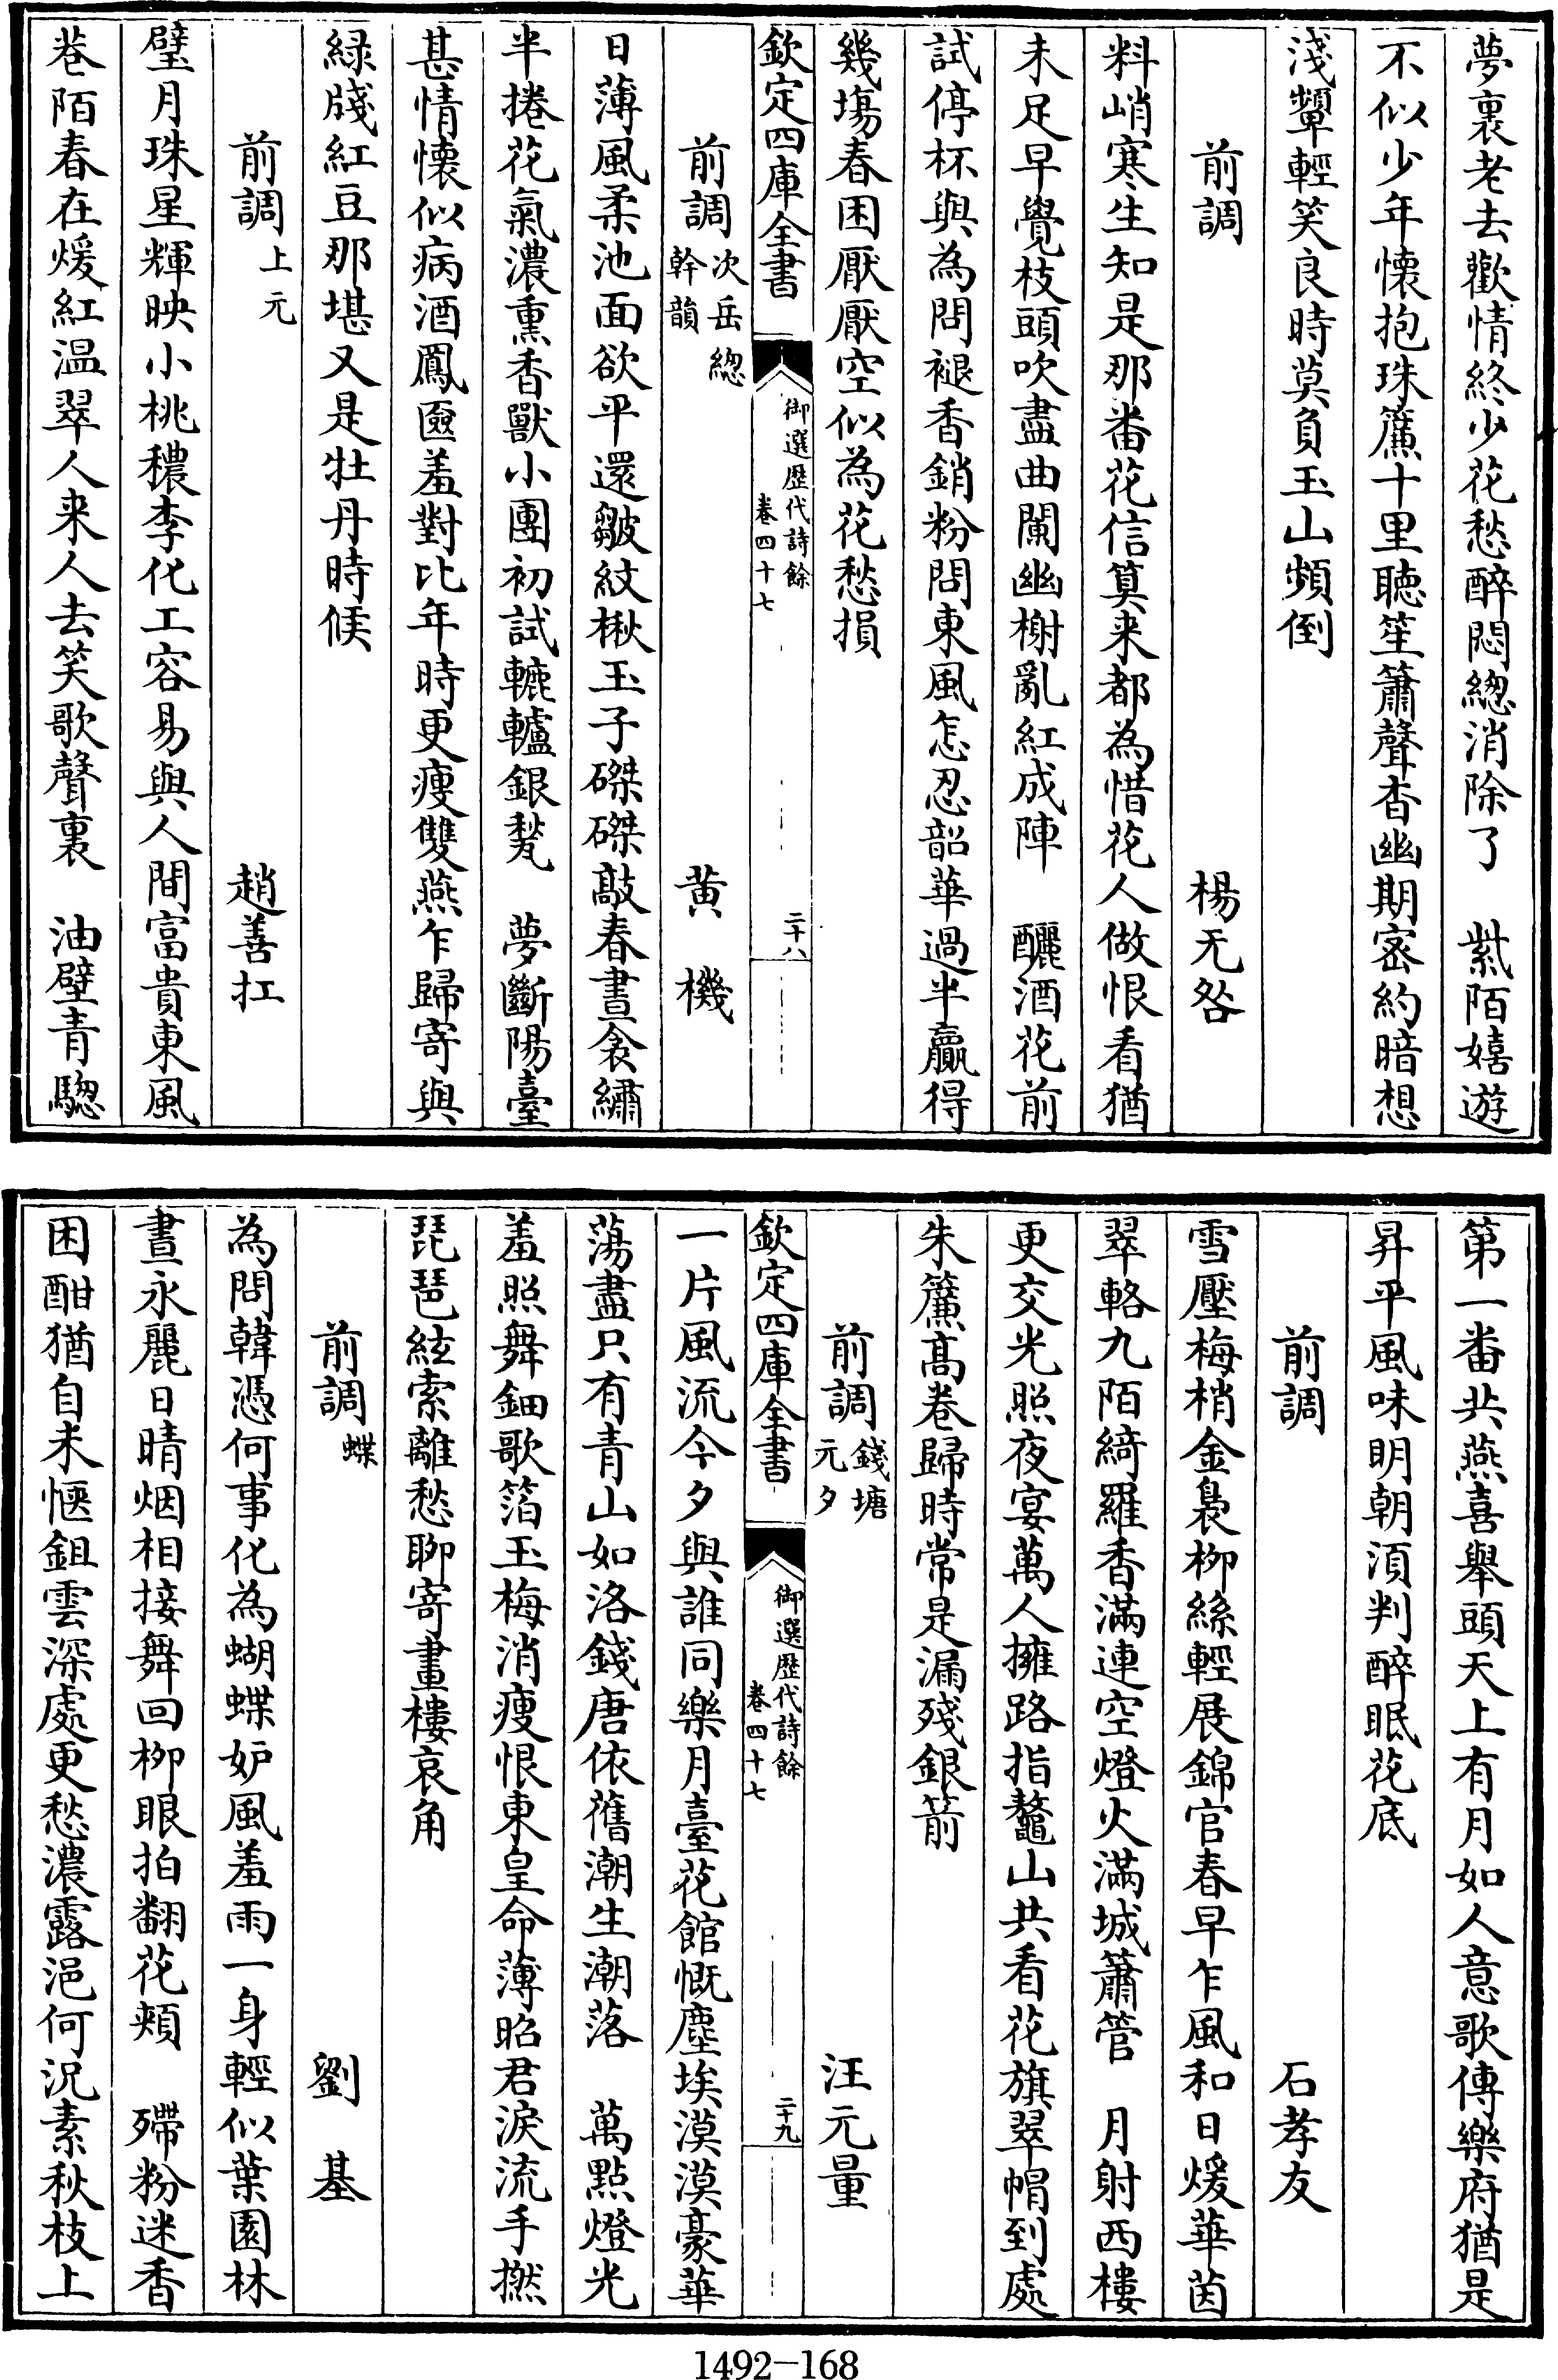 夢裏老去歡情終少花愁醉悶緫消除了　紫陌嬉遊
不似少年懷抱珠簾十里聽笙簫聲杳幽期密約暗想
淺顰輕笑良時莫負玉山頻倒
前調　楊无咎
料峭寒生知是那番花信算来都為惜花人做恨看猶
未足早覺枝頭吹盡曲闌幽榭亂紅成陣　釃酒花前
試停杯與為問褪香銷粉問東風怎忍韶華過半贏得
幾塲春困厭厭空似為花愁損
欽定四庫全書
御選歴代詩餘
卷四十七
二十八
前調次岳緫幹韻　黄機
日薄風柔池面欲平還皺紋楸玉子磔磔敲春晝衾繡
半捲花氣濃熏香獸小團初試轆轤銀甃　夢斷陽臺
甚情懷似病酒鳳匳羞對比年時更瘦雙燕乍歸寄與
緑牋紅豆那堪又是牡丹時候
前調上元　趙善扛
璧月珠星輝映小桃穠李化工容易與人間富貴東風
巷陌春在煖紅温翠人来人去笑歌聲裏　油壁青驄
第一番共燕喜舉頭天上有月如人意歌傳樂府猶是
昇平風味明朝湏判醉眠花底
前調　石孝友
雪壓梅梢金裊柳絲輕展錦官春早乍風和日煖華茵
翠輅九陌綺羅香滿連空燈火滿城簫管　月射西樓
更交光照夜宴萬人擁路指鼇山共看花旗翠帽到處
朱簾髙卷歸時常是漏殘銀箭
前調錢塘元夕　汪元量
欽定四庫全書
御選歴代詩餘
卷四十七
二十九
一片風流今夕與誰同樂月臺花館慨塵埃漠漠豪華
蕩盡只有青山如洛錢唐依舊潮生潮落　萬點燈光
羞照舞鈿歌箔玉梅消瘦恨東皇命薄昭君淚流手撚
琵琶絃索離愁聊寄畫樓哀角
前調蝶　劉基
為問韓憑何事化為蝴蝶妒風羞雨一身輕似葉園林
晝永麗日晴烟相接舞回柳眼拍翻花頰　殢粉迷香
困酣猶自未愜鉏雲深處更愁濃露浥何況素秋枝上
1492—168